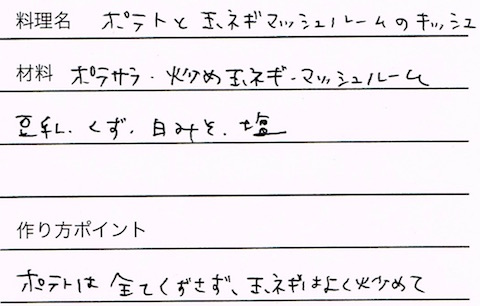 料理名 ポテトと玉ネギマッシュルームのキッシュ
材料 ポテサラ・炒め玉ネギ・マッシュルーム
豆乳、くず、白みそ、塩
作り方ポイント
ポテトは全てくずさず、玉ネギはよく炒めて